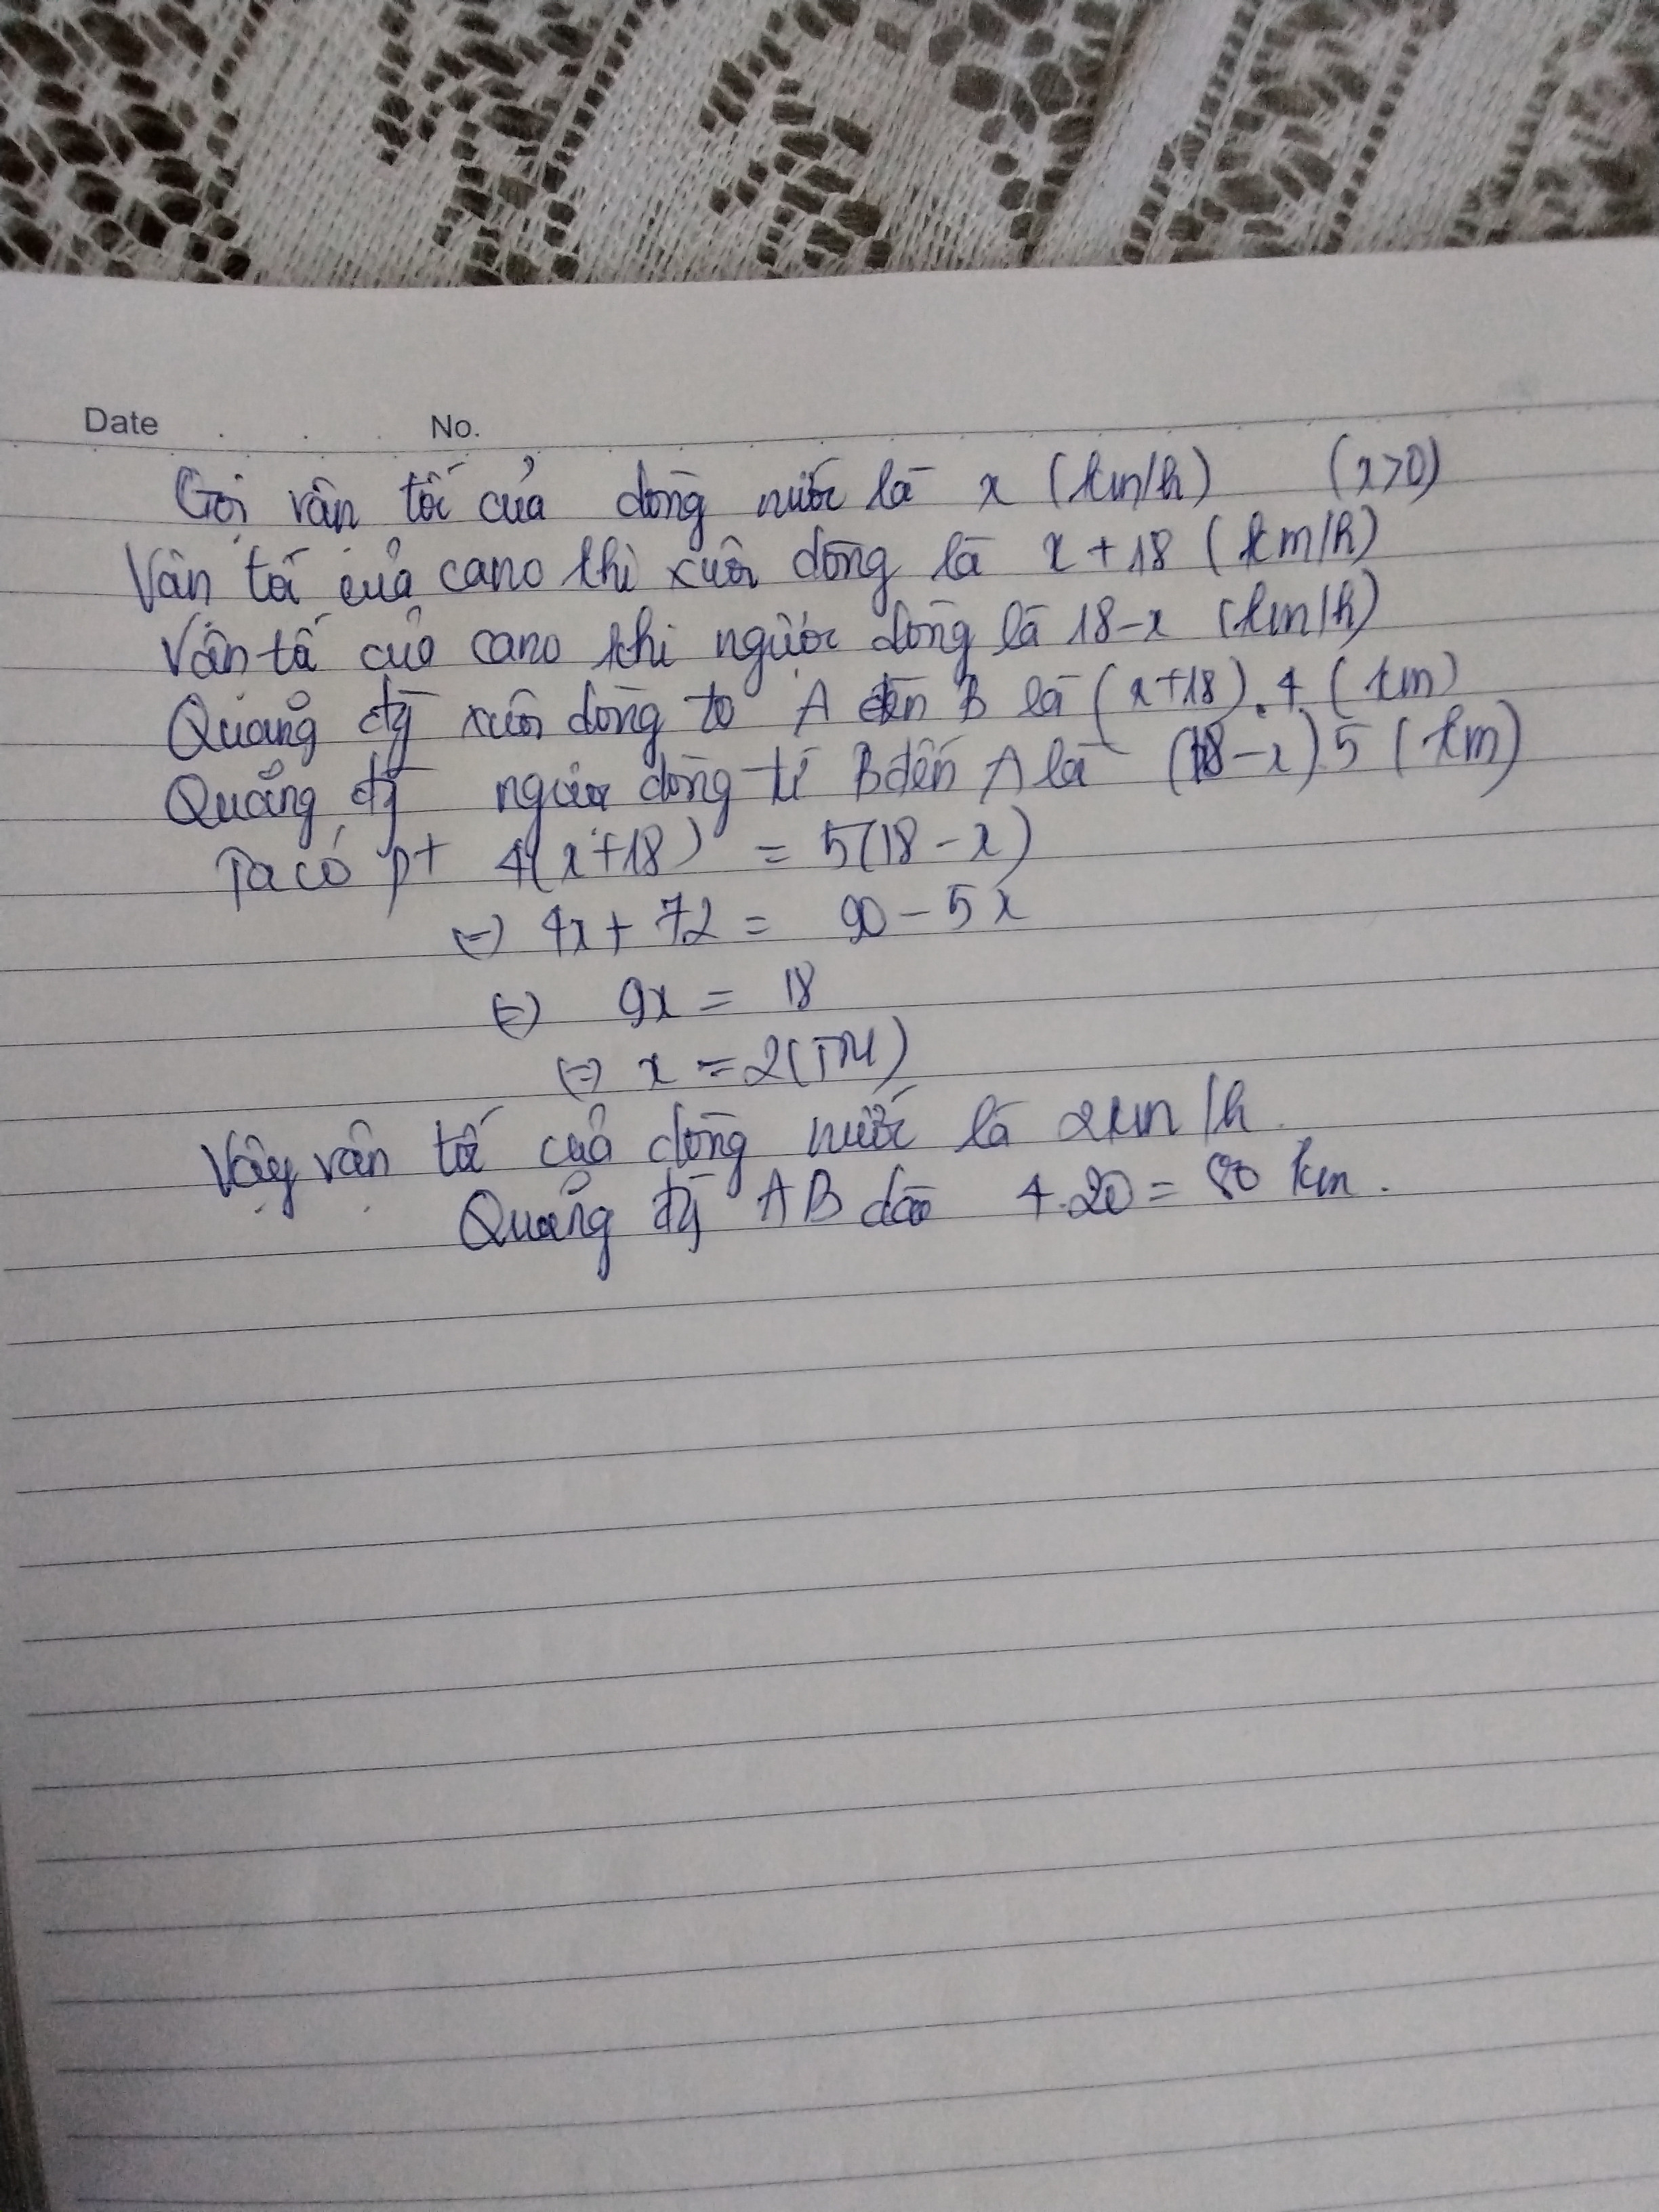 Date No.
Gọi vận tốc của dòng nước là x (km/h) (x>0)
Vân tốc của cano khi xuôi dòng là x + 18 (km/h)
Vận tố của cano khi ngược dòng là 18-x (km/h)
Quãng đg xuôi dòng từ A đến B là (x+18).4 (km)
Quãng đg ngược dòng từ B đến A là (18-x)5 (km)
Ta có pt 4(x+18) = 5(18-x)
(=) 4x + 72 = 90 - 5x
(=) 9x = 18
(=) x = 2(TM)
Vậy vân tốc của dòng nước là 2km/h
Quãng đg AB dài 4.20 = 80 km.